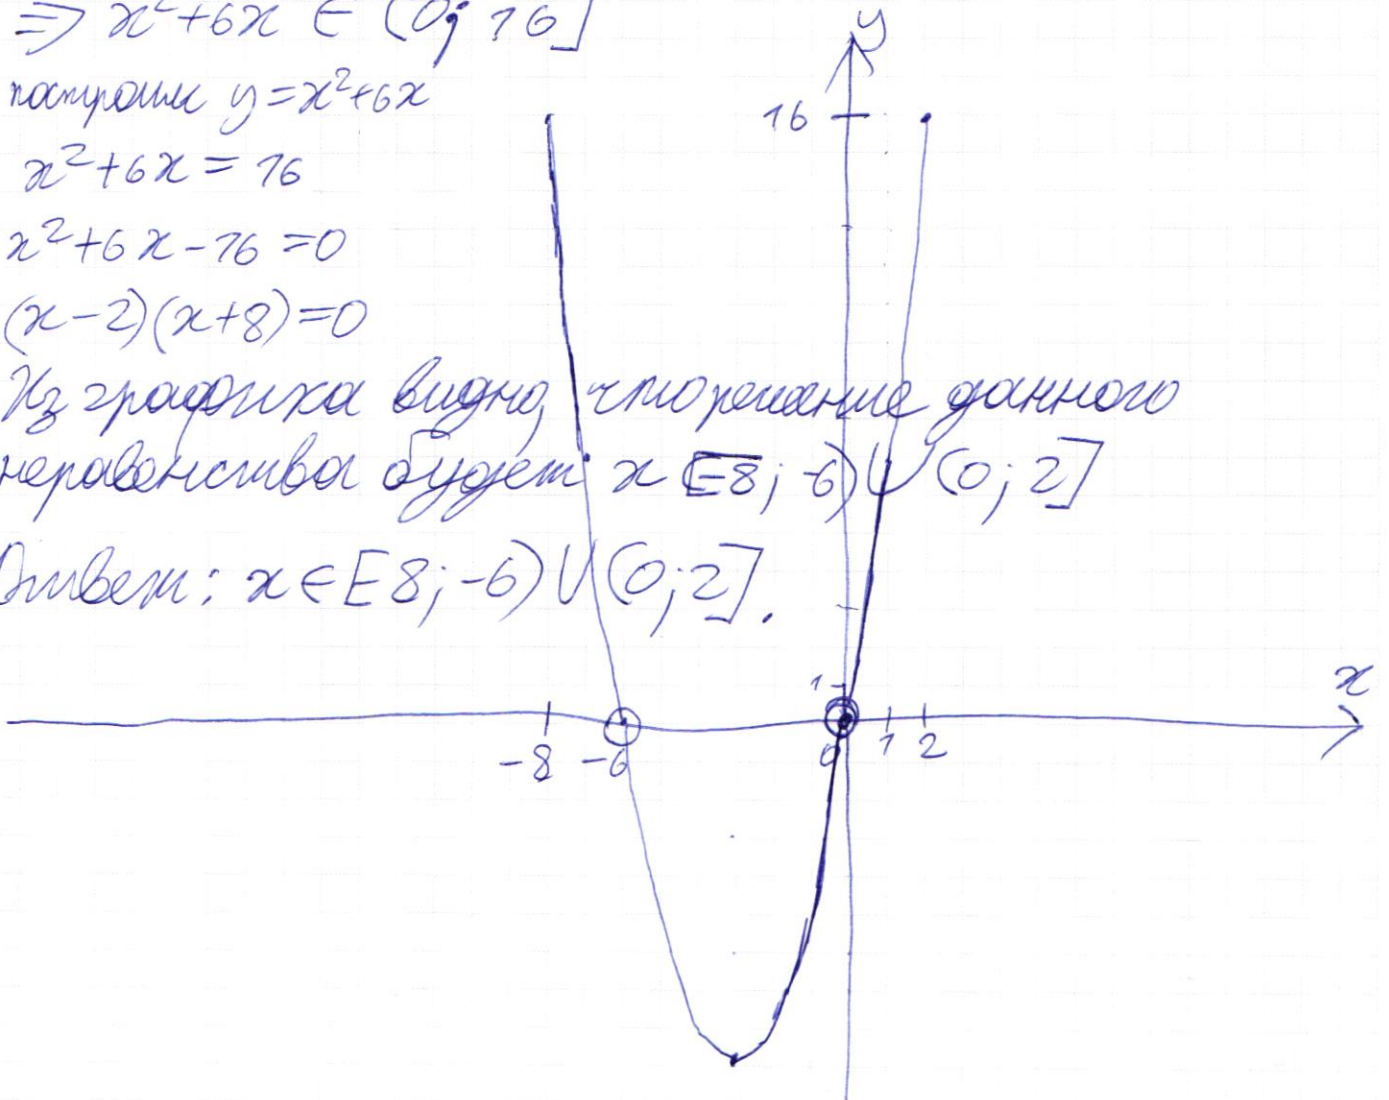 => x²+6x ∈ (0; 16]
построим y=x²+6x
x²+6x = 16
x²+6x-16=0
(x-2)(x+8)=0
Из графика видно, что решение данного
неравенства будет x ∈[-8; -6)∪(0; 2]
Ответ: x∈[8; -6)∪(0; 2].
y
16
1
x
-8 -6 0 1 2